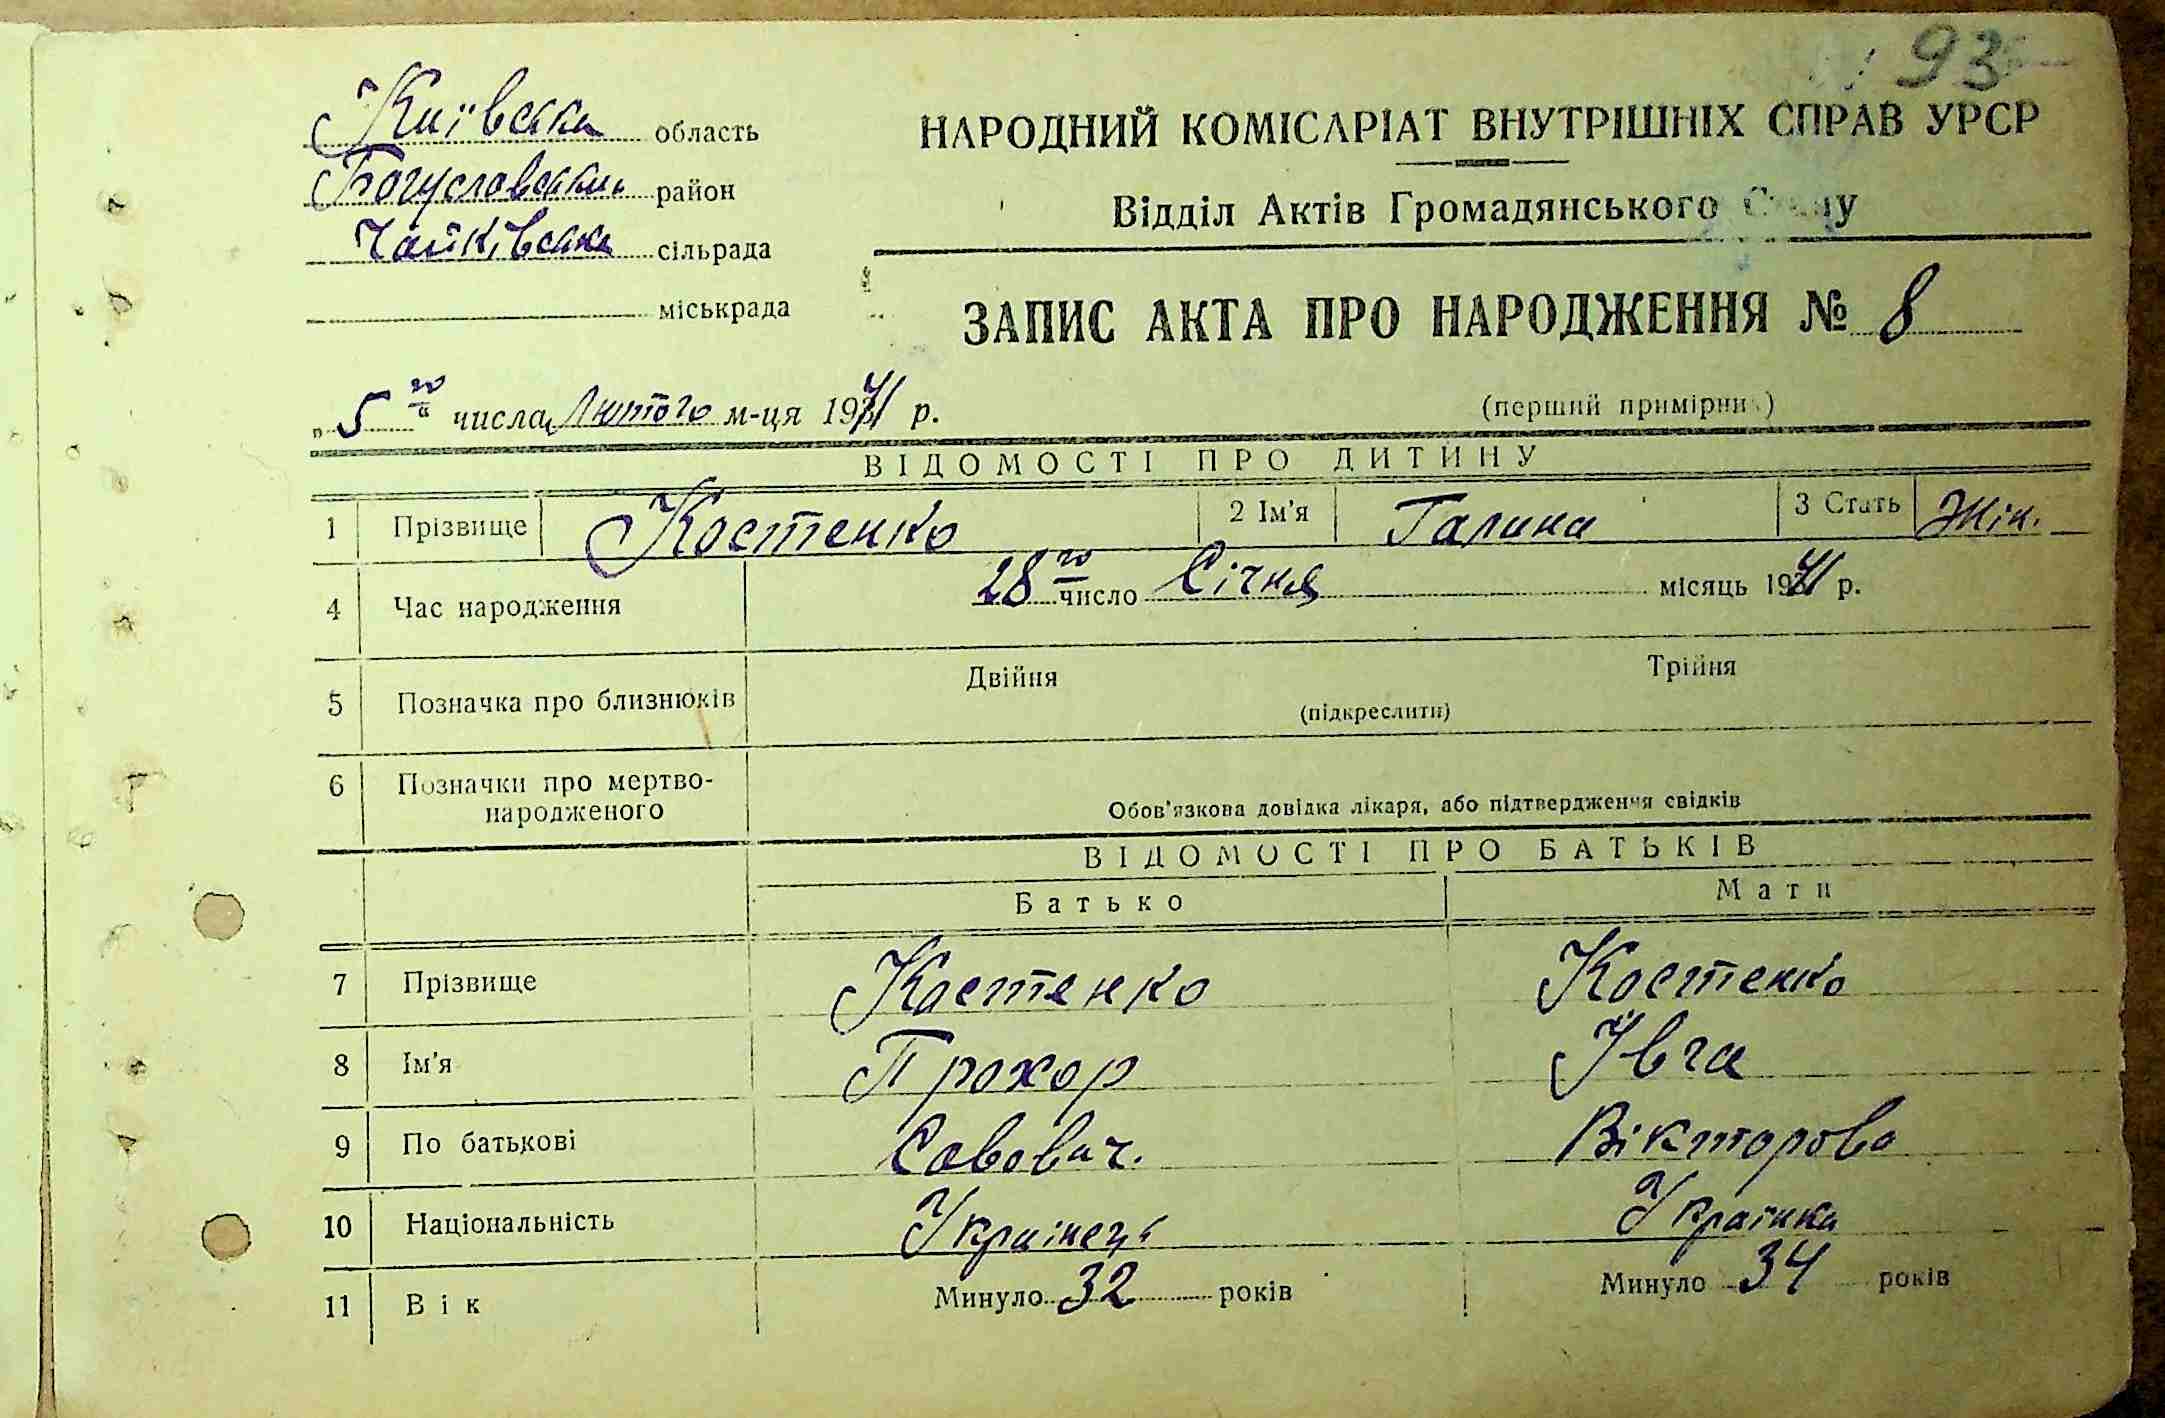 93
Київська область
Богуславський район
Чайківська сільрада
міськрада
НАРОДНИЙ КОМІСАРІАТ ВНУТРІШНІХ СПРАВ УРСР
Відділ Актів Громадянського Стану
ЗАПИС АКТА ПРО НАРОДЖЕННЯ № 8
„5 го числа Лютого м-ця 1941 р.
(перший примірник)
ВІДОМОСТІ ПРО ДИТИНУ
1 Прізвище Костенко 2 Ім'я Галина 3 Стать Жін.
4 Час народження 28 го число Січня місяць 1941 р.
5 Позначка про близнюків Двійня Трійня
(підкреслити)
6 Позначки про мертво-
народженого
Обов'язкова довідка лікаря, або підтвердження свідків
ВІДОМОСТІ ПРО БАТЬКІВ
Батько Мати
7 Прізвище Костенко Костенко
8 Ім'я Прохор Івга
9 По батькові Савович. Вікторова
10 Національність Українець Українка
11 Вік Минуло 32 років Минуло 34 років